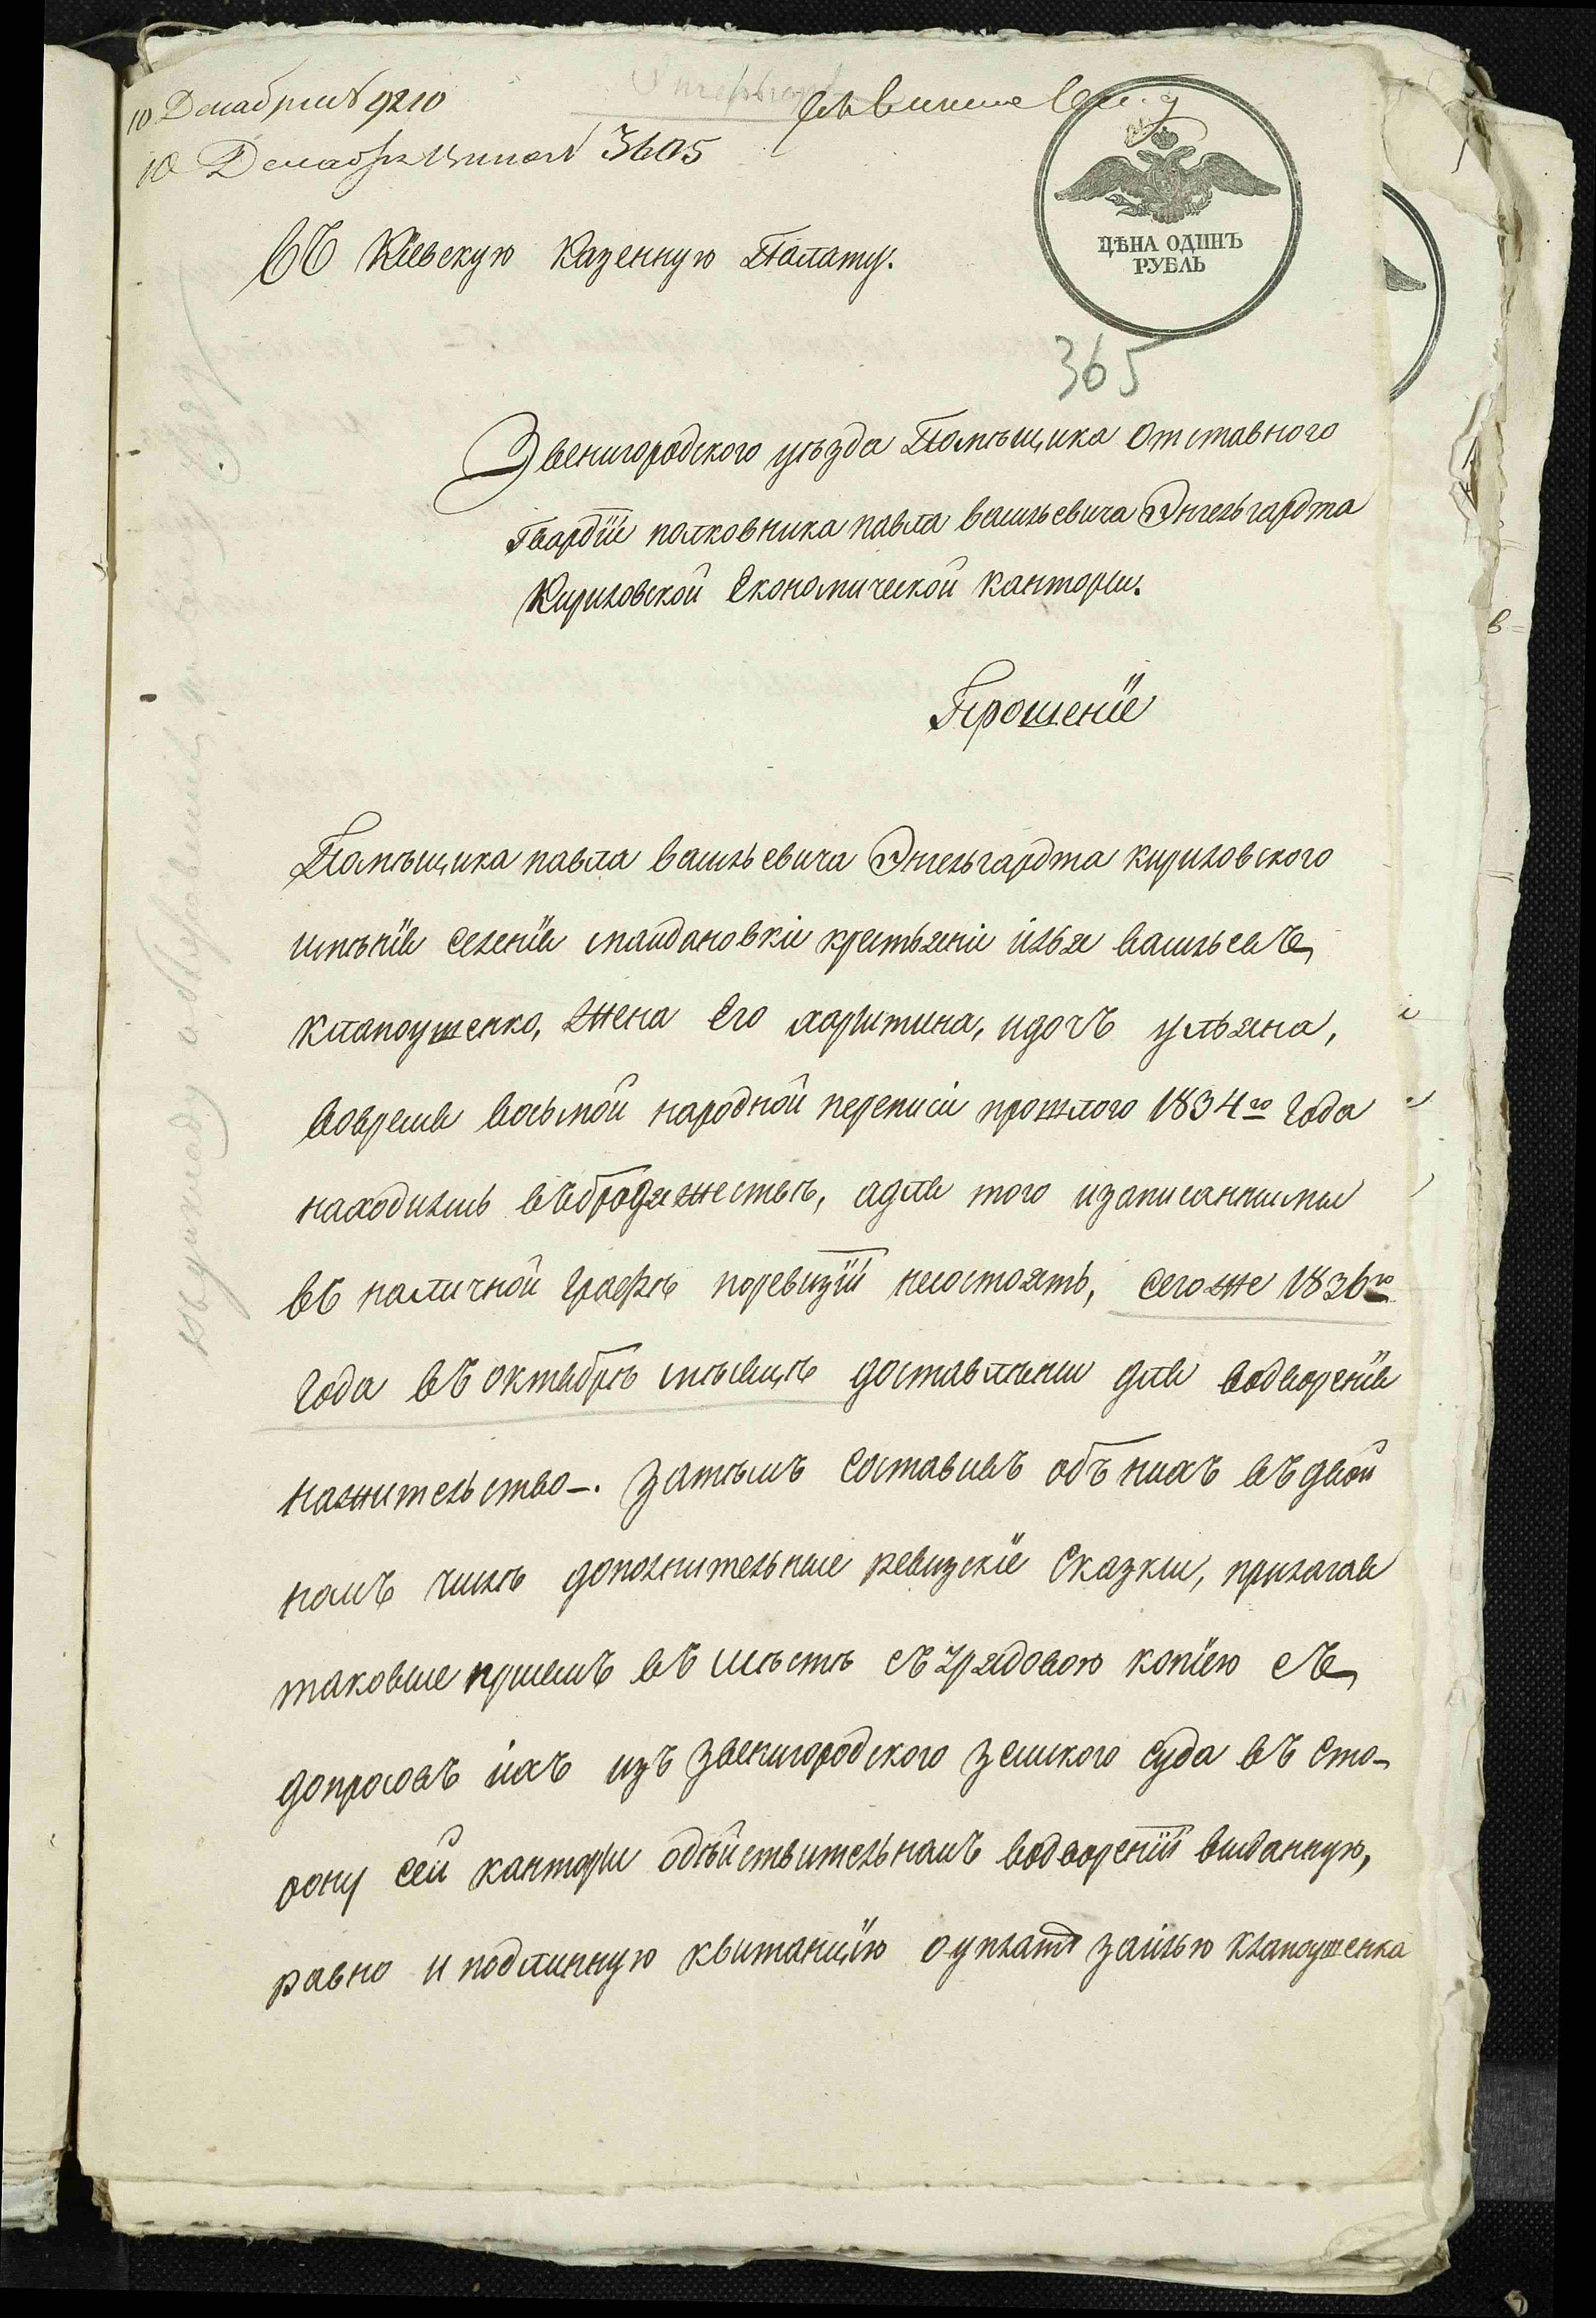 10 Декабря № 9210
10 Декабря № 3605
ЦѢНА ОДИНЪ
РУБЛЬ
Въ Кіевскую Казенную Палату.
365
Звенигородского уѣзда Помѣщика Отставного
Гвардіи полковника павла васильевича Энгельгардта
Кириловской Економической канторы.
Прошеніе
Помѣщика павла васильевича Энгельгардта кириловского
имѣнія селенія майдановки крестьяни илья васильевъ
клапоушенко, жена Его харитина, идочъ ульяна,
вовремя восьмой народной переписи прошлого 1834го Года
находились въбродяжествѣ, адля того изаписанными
въ наличной графѣ поревизіи несостоять, сегоже 1836го
Года въ октябрѣ мѣсяцѣ доставлѣны для водворенія
нажительство-. Затѣмъ составивъ объ нихъ въдвой
номъ числѣ дополнительные ревизскіе Сказки, прилагая
таковые присемъ въ мѣстѣ съ урядовою копіею съ
допросовъ ихъ изъ звенигородского земского суда въ сто-
рону сей канторы одѣйствительномъ водвореніи выданную,
равно и подлинную квитанцію оуплатѣ заилью клапоушенка